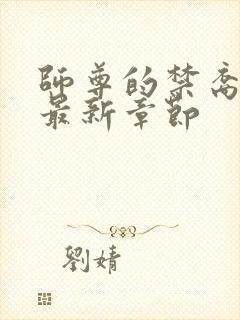 師尊的禁
最新章節
劉婧